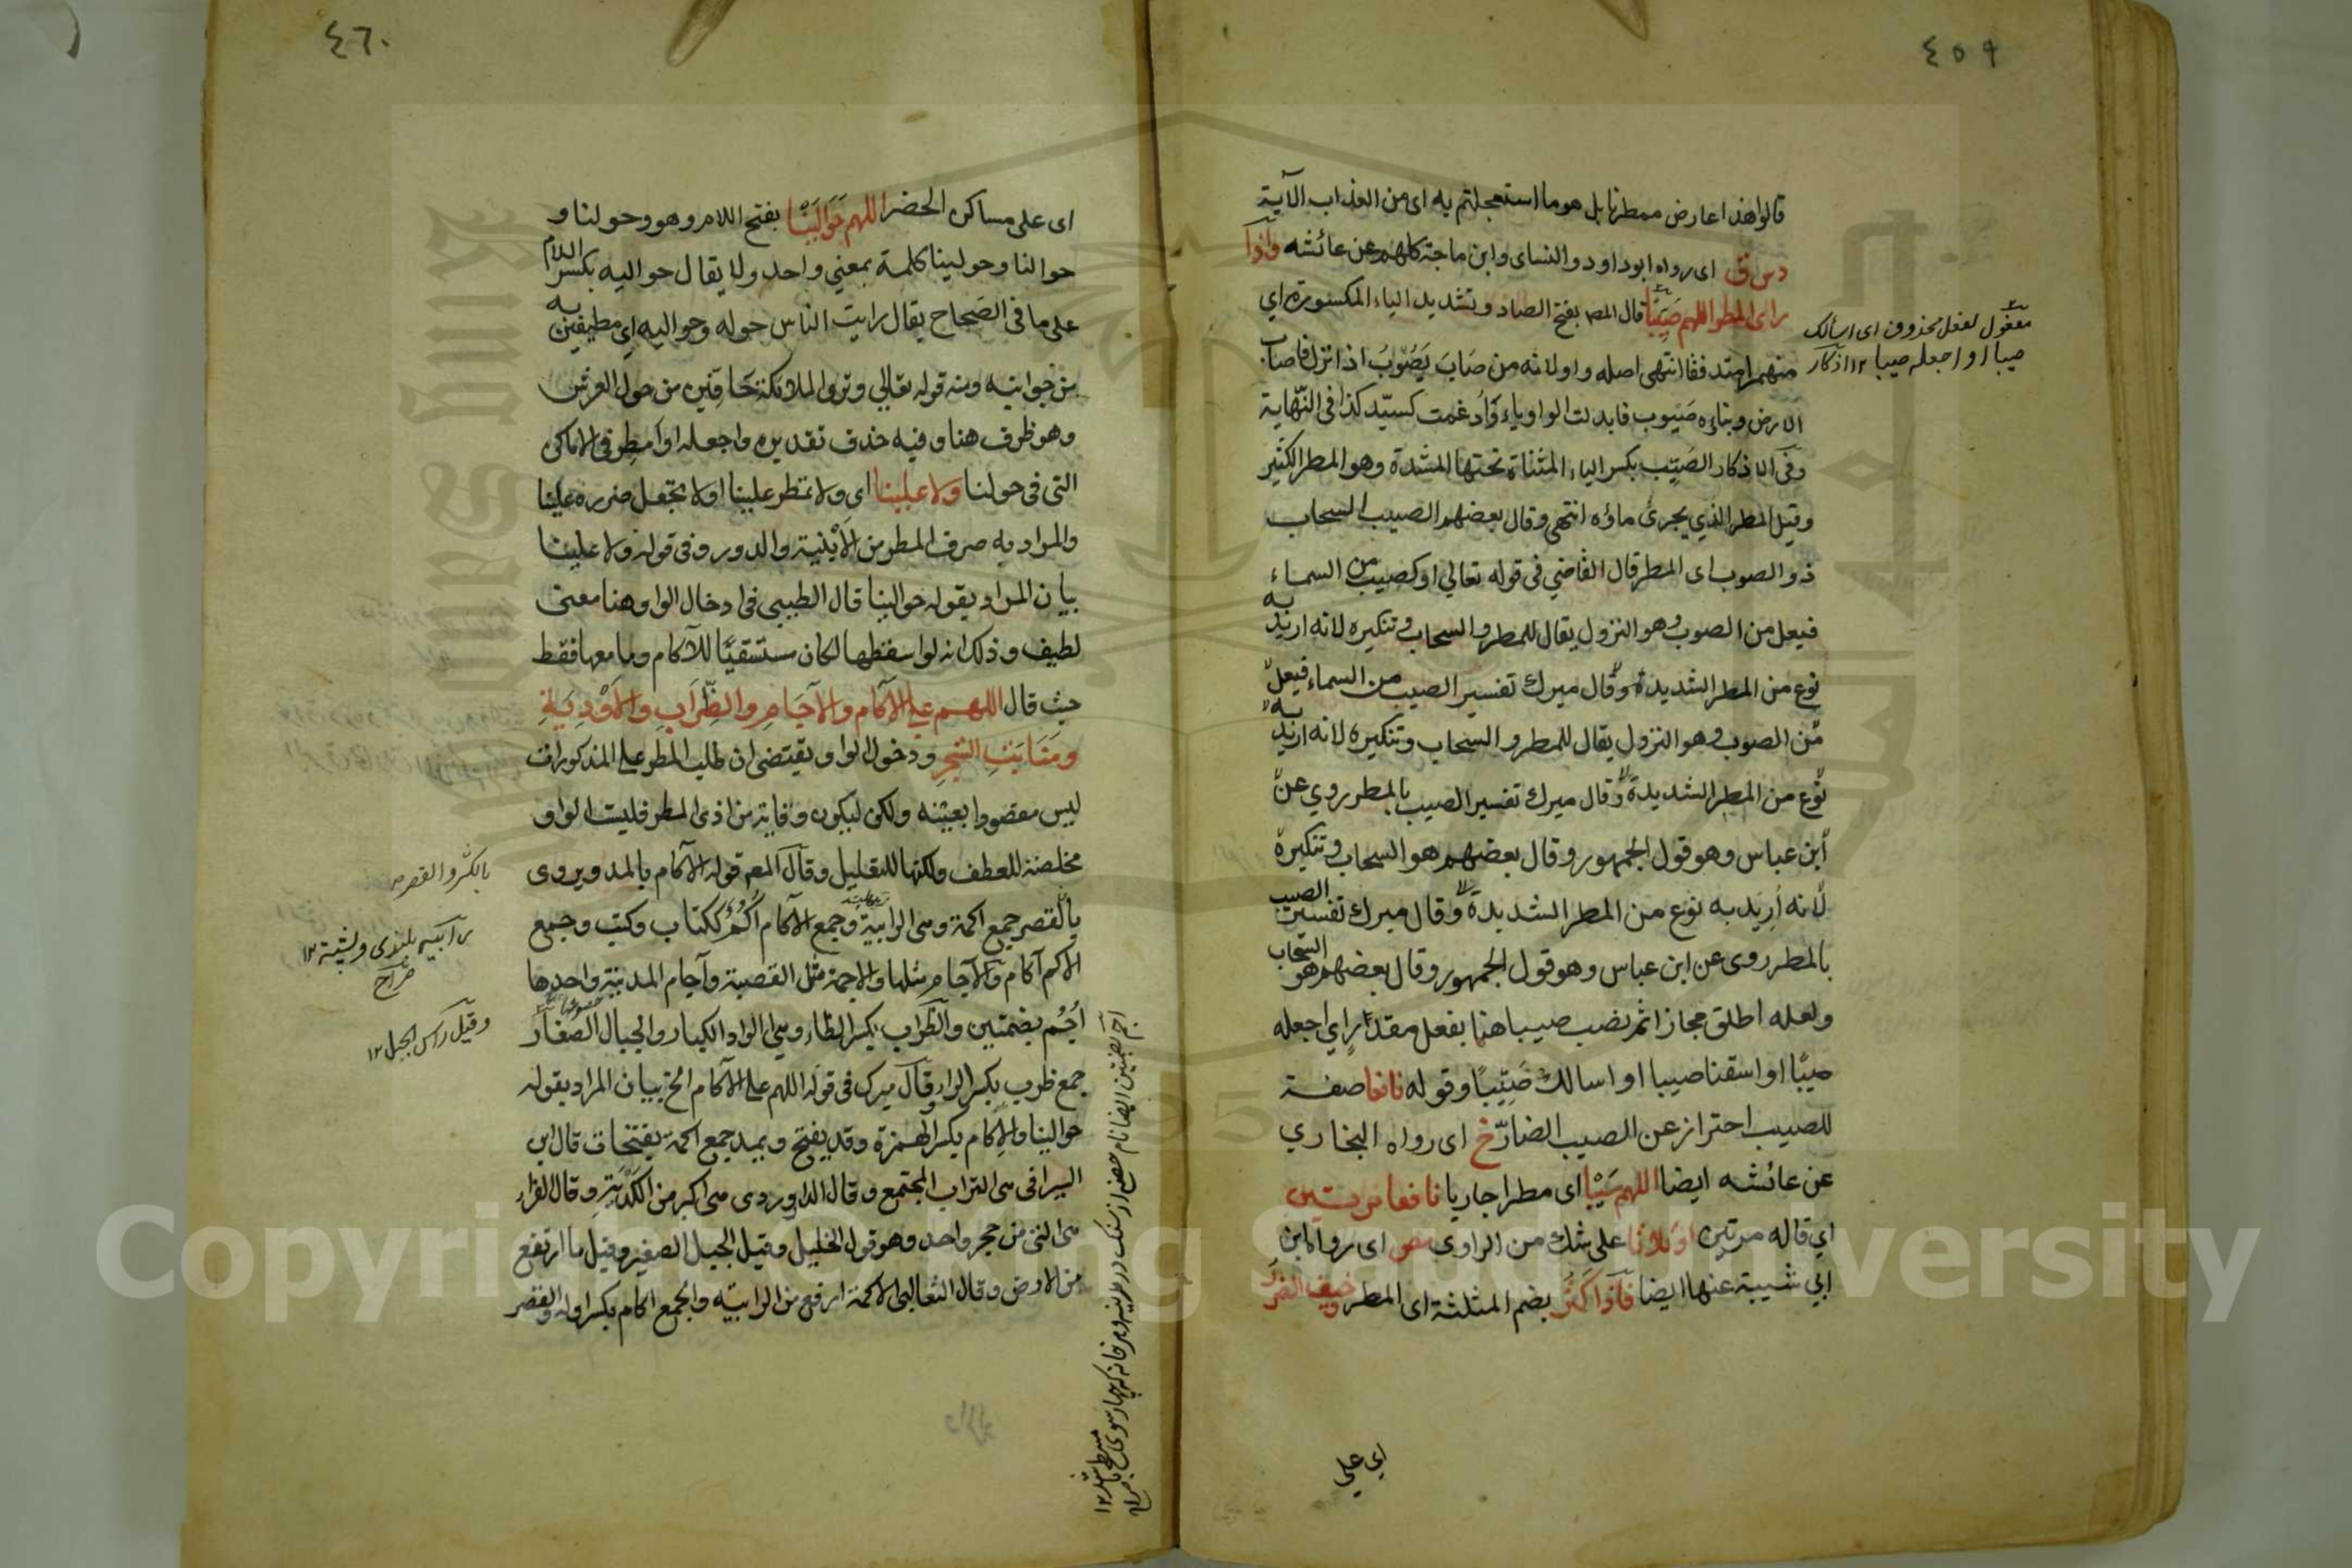 ٤٥٩
قالوا هذا عارض ممطرنا بل هو ما استعجلتم به اى من العذاب الآية
دس ق اى رواه ابو داود والنساى وابن ماجة كلهم عن عائشه واذا
راى المطر اللهم صَيِّبًا قال المص بفتح الصاد وتشديد الياء المكسورة اي
منهمرا متدفقا انتهى اصله واو لانه من صَابَ يَصُوبُ اذا نزل فاصاب
الارض وبناؤه صَيْوِب فابدلت الواو ياء وَاُدغمت كسيّد كذا فى النّهاية
وفى الاذكار الصَيِّب بكسر الياء المثناة تحتها المشددة وهو المطر الكثير
وقيل المطر الذي يجرى ماؤه انتهى وقال بعضهم الصيب السحاب
ذو الصوب اى المطر قال القاضي فى قوله تعالي او كصيب من السماء
فيعل من الصوب وهو النزول يقال للمطر والسحاب وتنكيره لانه اريد به
نوع من المطر الشديدة وقال ميرك تفسير الصيب من السماء فيعل
من الصوب وهو النزول يقال للمطر والسحاب وتنكيره لانه اريد به
نوع من المطر الشديدة وقال ميرك تفسير الصيب بالمطر روي عن
ابن عباس وهو قول الجمهور وقال بعضهم هو السحاب وتنكيرة
لانه اُرِيَد به نوع من المطر الشديدة وقال ميرك تفسير الصيب
بالمطر روى عن ابن عباس وهو قول الجمهور وقال بعضهم هو السّحاب
ولعله اطلق مجازا ثم نصب صيبا هنا بفعل مقدار اي اجعله
صيبًا او اسقنا صيبا او اسالك صَيّبًا وقوله نافعا صفة
للصيب احتراز عن الصيب الضارّ خ اى رواه البخاري
عن عائشه ايضا اللهم سَيْبًا اى مطرا جاريا نافعا مرتين
اي قاله مرتين او ثلاثا على شك من الراوى مص اى رواه ابن
ابي شيبة عنها ايضا فاذا كَثُرَ بضم المثلثة اى المطر وخيف الضر
اي علي
مفعول لفعل محذوف اى اسألك
صيبا او اجعله صيبا ١٢ اذكار
٤٦٠
اى على مساكن الحضر اللهم حَوَالَيْنَا بفتح اللام وهو وحولنا و
حوالنا وحولينا كلمة بمعني واحد ولا يقال حواليه بكسر اللام
على ما فى الصَحاح يقال رايت الناس حوله وحواليه اي مطيفين به
من جوانبه ومنه قوله تعالي وترى الملائكة حَافِّين من حول العرش
وهو ظرف هنا وفيه حذف تقديره واجعله او اَمطِر فى الاماكن
التى فى حولنا ولا علينا اى ولا تمطر علينا او لا تجعل ضرره علينا
والمراد به صرف المطر من الاَبْنية والدور وفى قوله ولا علينا
بيان المراد بقوله حوالينا قال الطيبى فى ادخال الواو هنا معنى
لطيف وذلك انه لو اسقطها لكان مستسقيًا للآكام وما معها فقط
حيث قال اللهم علي الآكام والآجَامِ والظِّرَابِ والاَوْدِيَةِ
ومَنَابِتِ الشَجَرِ ودخول الواو يقتضى ان طلب المطر علي المذكورات
ليس مقصودا بعينه ولكن ليكون وقاية من اذى المطر فليست الواو
مخلصة للعطف ولكنها للتعليل وقال المص قوله الآكام بالمد ويروى
بالقصر جمع اكمة وهى الرابية وجمع الآكام اُكُم ككتاب وكتب وجمع
الاكم آكام والآجام مثلها والاجمة مثل القصبة وآجام المدينة واحدها
اُجُم بضمتين والظِرَاب بكسر الظاء وهي الواد الكبار والجبال الصغار
جمع ظرب بكسر الراء وقال ميرك فى قوله اللهم علي الآكام الخ بيان المراد بقوله
حوالينا والاِكام بكسر الهمزة وقد يفتح ويمد جمع اكمة بفتحات قال ابن
السيرافى هى التراب المجتمع وقال الداوردى هى اكبر من الكُدْيَةِ وقال القزاز
هى التى من حجر واحد وهو قول الخليل وقيل الجبل الصغير وقيل ما ارتفع
من الارض وقال الثعالبى الاكمة ارفع من الرابية والجمع اكام بكسر اوله والقصر
بالكسر والقصر
رابيه بلندى وپشته ١٢
صُراح
وقيل رأس الجبل ١٢
Copyright © King Saud University